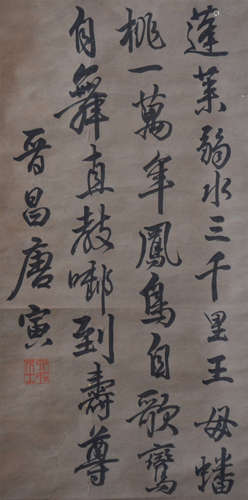 蓬莱弱水三千里王母蟠
桃一萬年鳳鳥自歌鸞
自舞直教啣到壽尊
晉昌唐寅